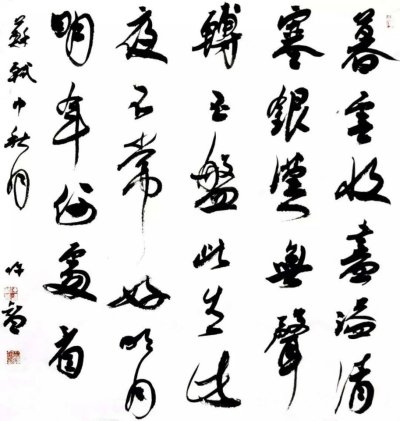 暮雲收盡溢清
寒銀漢無聲
轉玉盤此生此
夜不常好明月
明年何處看
蘇軾中秋月